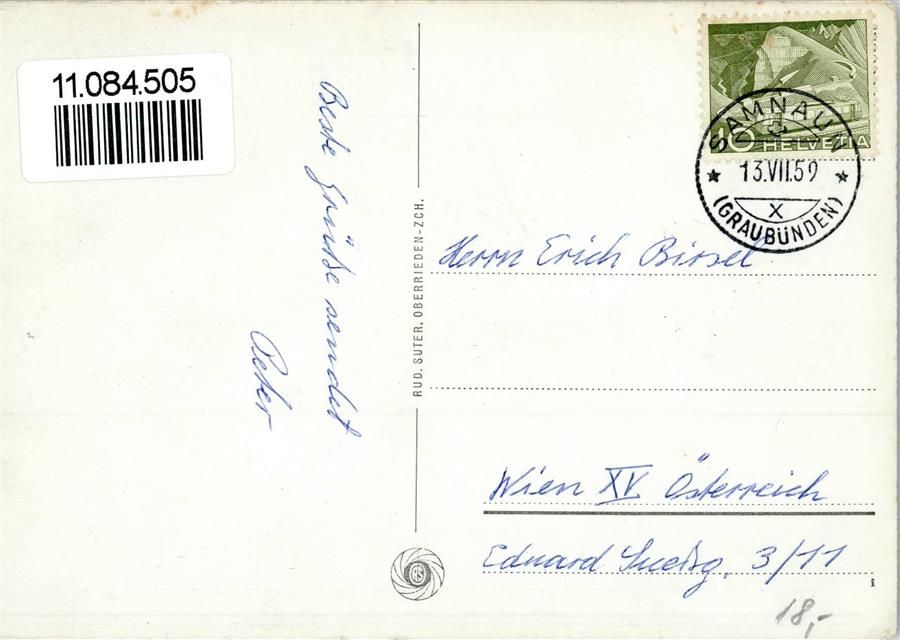 11.084.505
Beste Grüße sendet
Peter
RUD. SUTER, OBERRIEDEN-ZCH.
10 HELVETIA
SAMNAUN
13.VII.59
X
(GRAUBÜNDEN)
Herrn Erich
Wien XV Österreich
Eduard 3/11
18,-